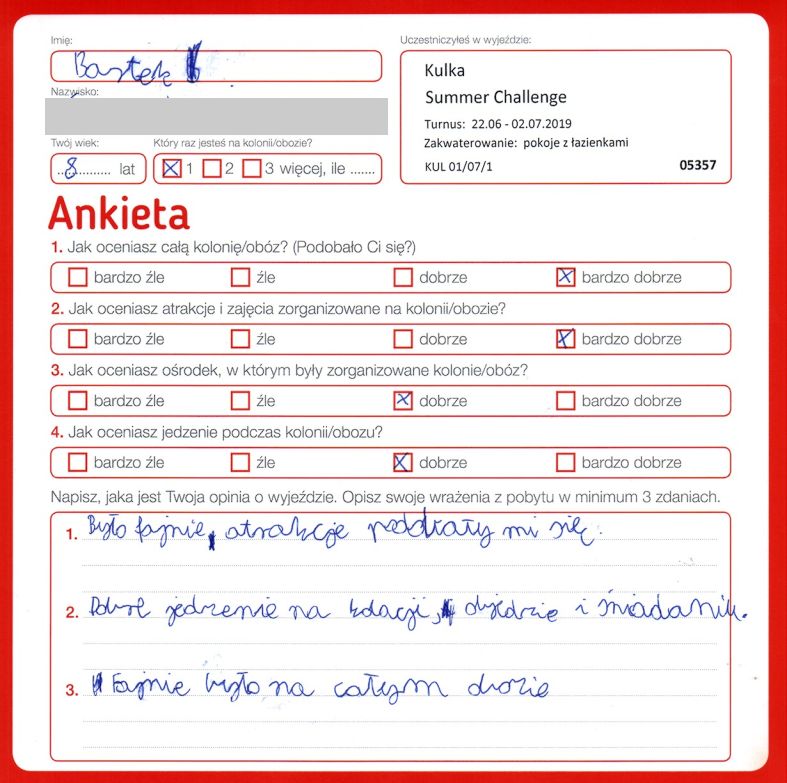 Imię:
Bartek
Nazwisko:
Twój wiek:
8 lat
Który raz jesteś na kolonii/obozie?
1 2 3 więcej, ile .......
Uczestniczyłeś w wyjeździe:
Kulka
Summer Challenge
Turnus: 22.06 - 02.07.2019
Zakwaterowanie: pokoje z łazienkami
KUL 01/07/1 05357
Ankieta
1. Jak oceniasz całą kolonię/obóz? (Podobało Ci się?)
bardzo źle źle dobrze bardzo dobrze
2. Jak oceniasz atrakcje i zajęcia zorganizowane na kolonii/obozie?
bardzo źle źle dobrze bardzo dobrze
3. Jak oceniasz ośrodek, w którym były zorganizowane kolonie/obóz?
bardzo źle źle dobrze bardzo dobrze
4. Jak oceniasz jedzenie podczas kolonii/obozu?
bardzo źle źle dobrze bardzo dobrze
Napisz, jaka jest Twoja opinia o wyjeździe. Opisz swoje wrażenia z pobytu w minimum 3 zdaniach.
1. Było fajnie, atrakcje mi się.
2. Dobre jedzenie na kolacji, i
3. Fajnie było na całym obozie